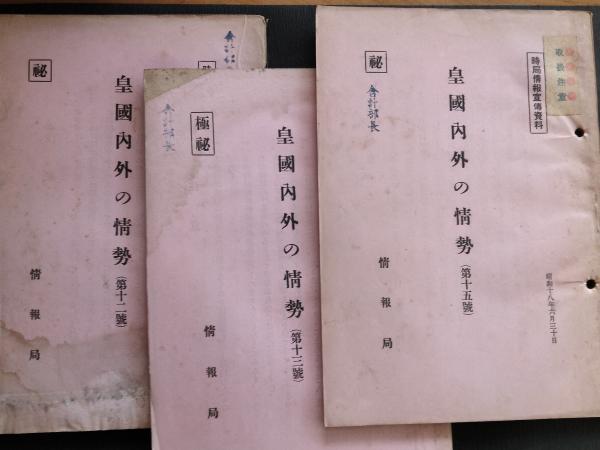 取扱注意
時局情報宣傳資料
秘
會計部長
皇國內外の情勢
(第十五號)
昭和十八年六月三十日
情報局
極秘
會計部長
皇國內外の情勢
(第十三號)
情報局
秘
皇國內外の情勢
(第十二號)
情報局